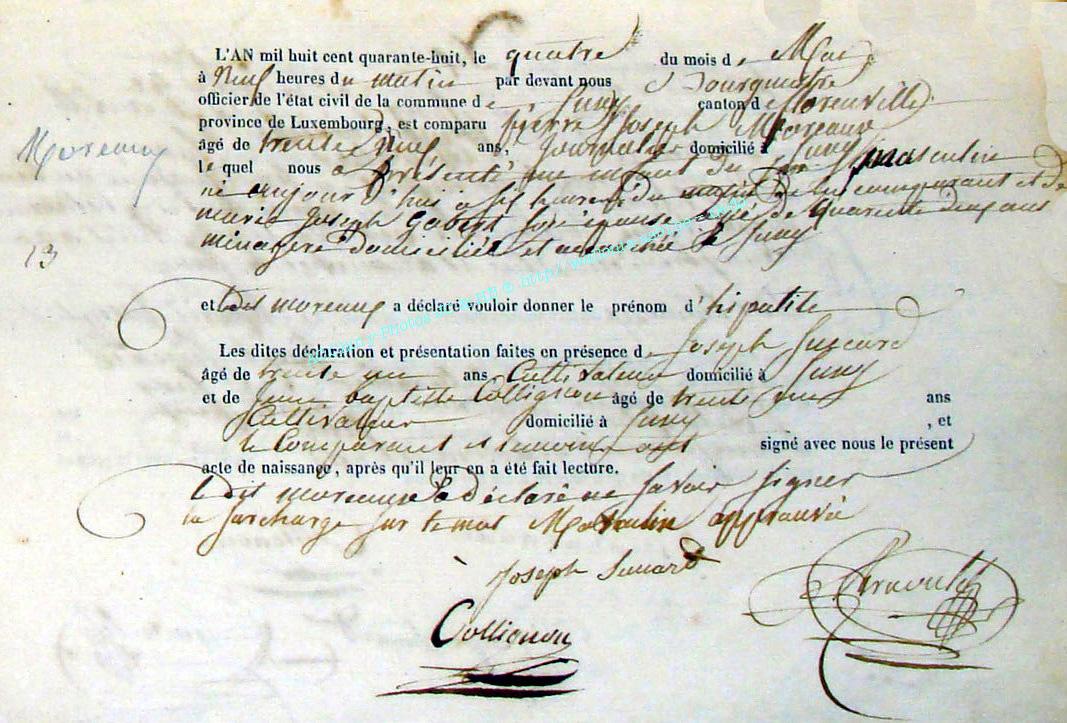 L'AN mil huit cent quarante-huit, le quatre du mois de Mai
à Neuf heures du matin par devant nous Bourgmestre
officier de l'état civil de la commune de Suxy canton de florenville
province de Luxembourg, est comparu pierre Joseph Moreaux
Moreaux
âgé de trente neuf ans, Journalier domicilié à Suxy
le quel nous a présenté un enfant du sexe masculin
né aujourd'hui à six heures du matin de lui comparant et de
marie Joseph son épouse agée de quarante deux ans
13
ménagère domiciliée et à Suxy
et ledit moreaux a déclaré vouloir donner le prénom d'hipolite
Les dites déclaration et présentation faites en présence de Joseph
âgé de trente un ans, Cultivateur domicilié à Suxy
et de Jean baptiste Collignon âgé de trente ans
Cultivateur domicilié à Suxy , et
le Comparant et temoins ont signé avec nous le présent
acte de naissance, après qu'il leur en a été fait lecture.
le dit moreaux a déclaré ne savoir signer
la surcharge sur le mot Masculin approuvée
Joseph
Collignon